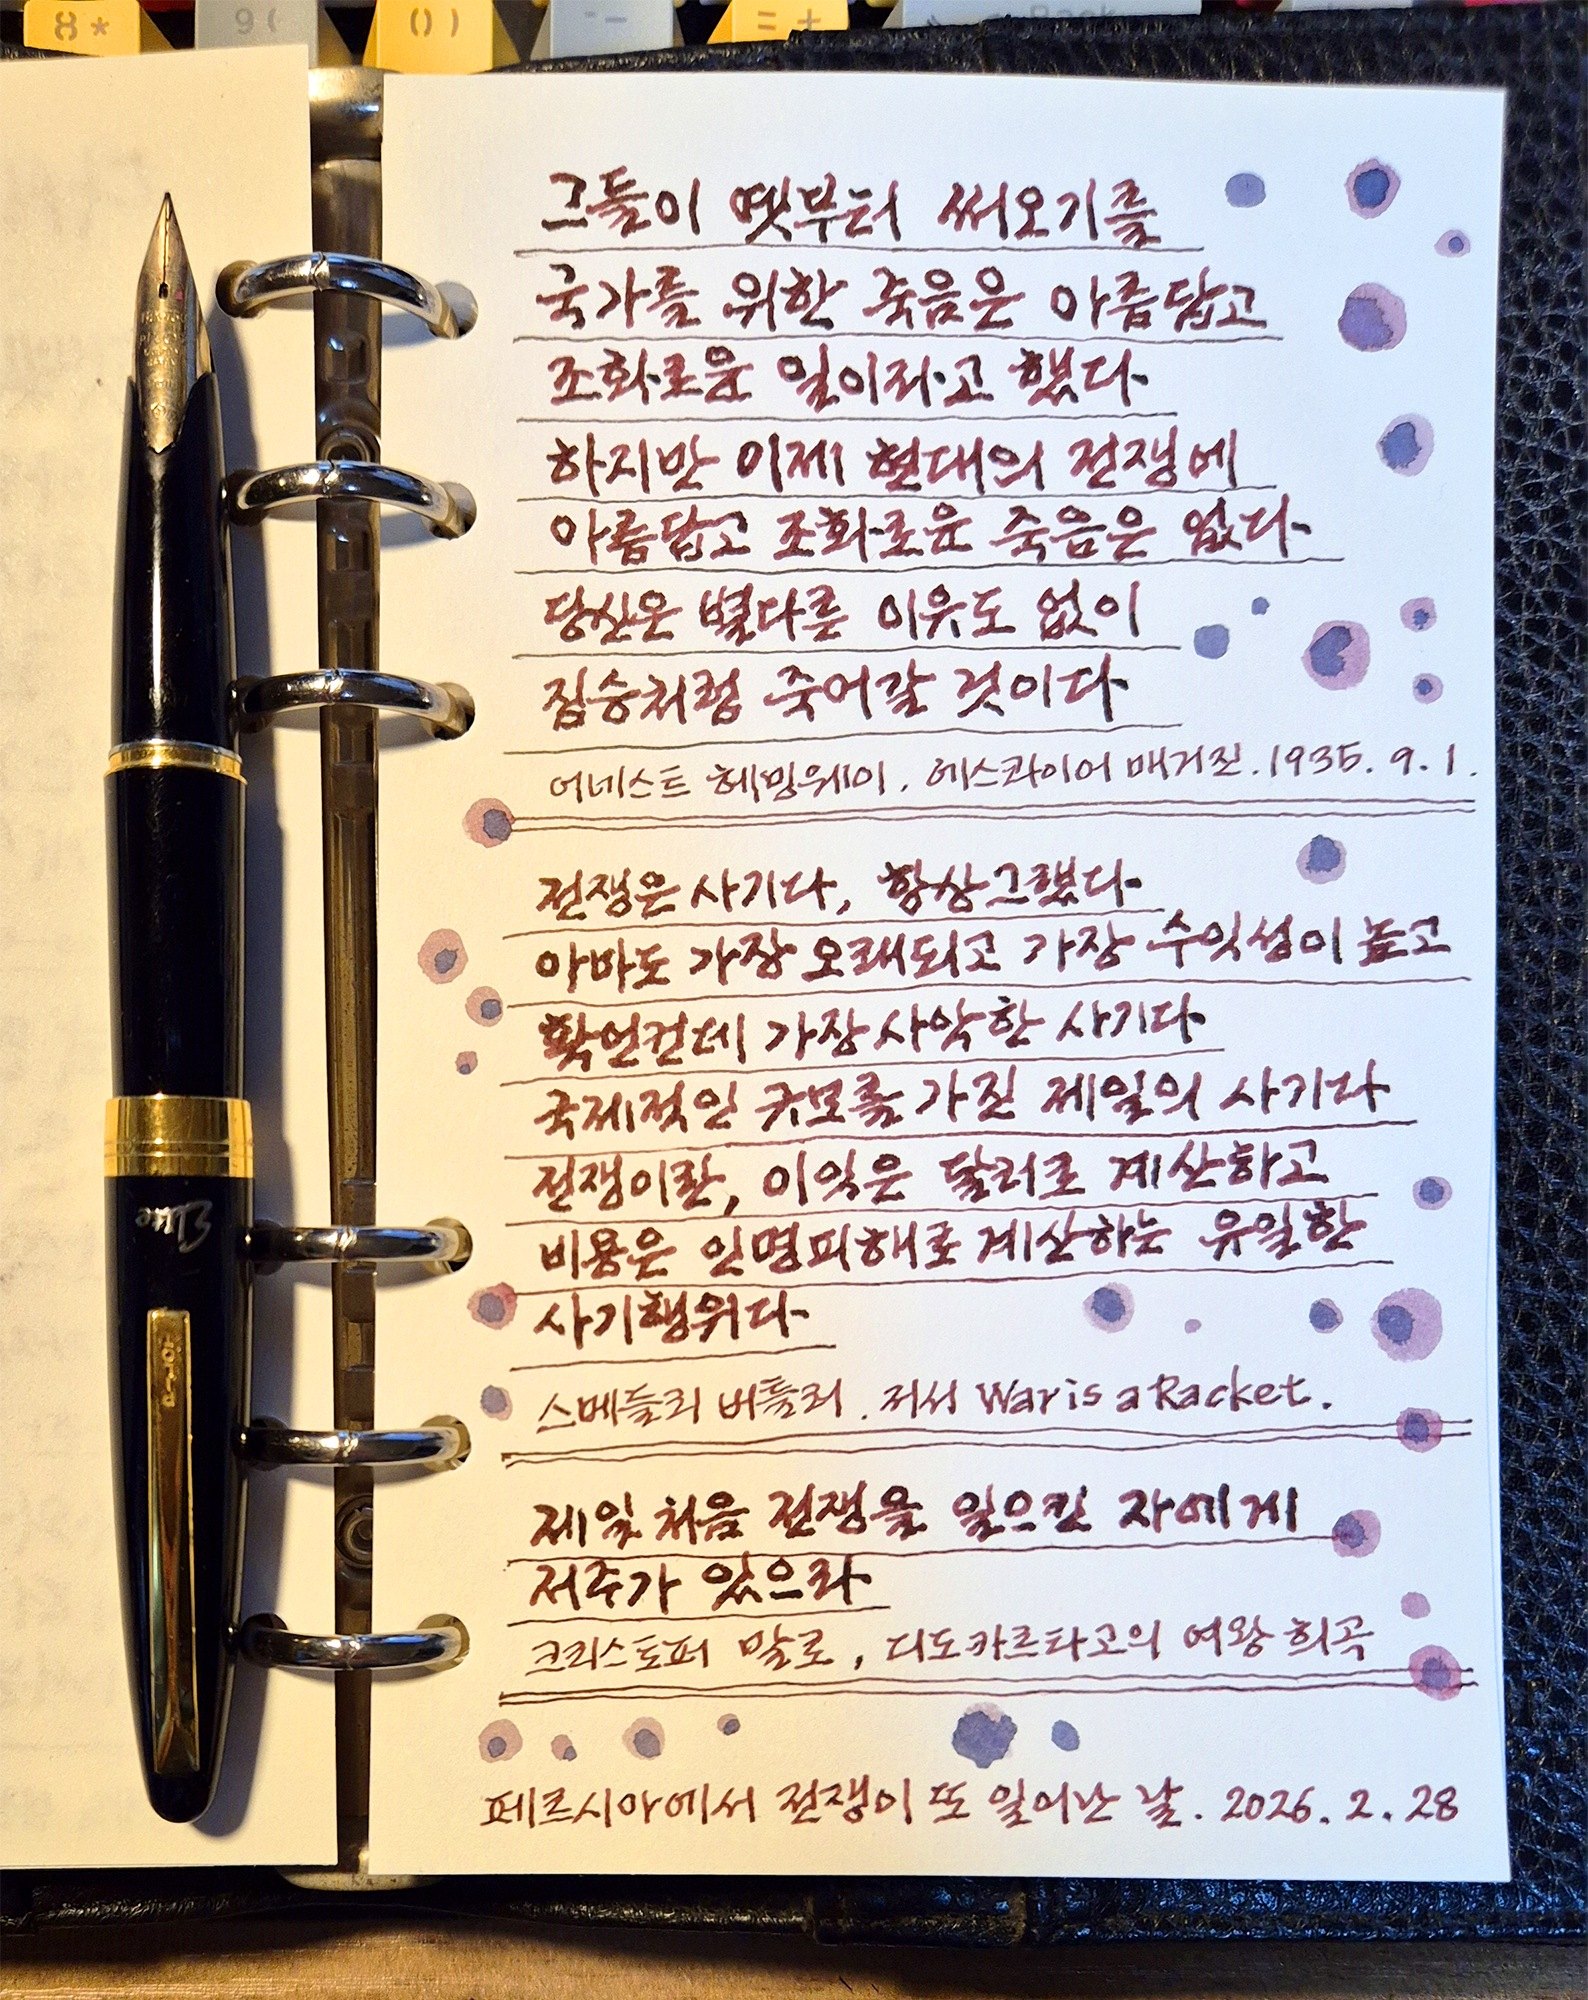 8 *
9 (
0 )
- -
= +
Back
그들이 옛부터 써오기를
국가를 위한 죽음은 아름답고
조화로운 일이라고 했다.
하지만 이제 현대의 전쟁에
아름답고 조화로운 죽음은 없다.
당신은 별다른 이유도 없이
짐승처럼 죽어갈 것이다.
어네스트 헤밍웨이. 에스콰이어 매거진. 1935. 9. 1.
전쟁은 사기다, 항상 그랬다.
아마도 가장 오래되고 가장 수익성이 높고
확언컨데 가장 사악한 사기다.
국제적인 규모를 가진 제일의 사기다
전쟁이란, 이익은 달러로 계산하고
비용은 인명피해로 계산하는 유일한
사기행위다.
스메들리 버틀러. 저서 War is a Racket.
제일 처음 전쟁을 일으킨 자에게
저주가 있으라.
크리스토퍼 말로, 디도카르타고의 여왕 희곡
페르시아에서 전쟁이 또 일어난 날. 2026. 2. 28
Elite
PILOT